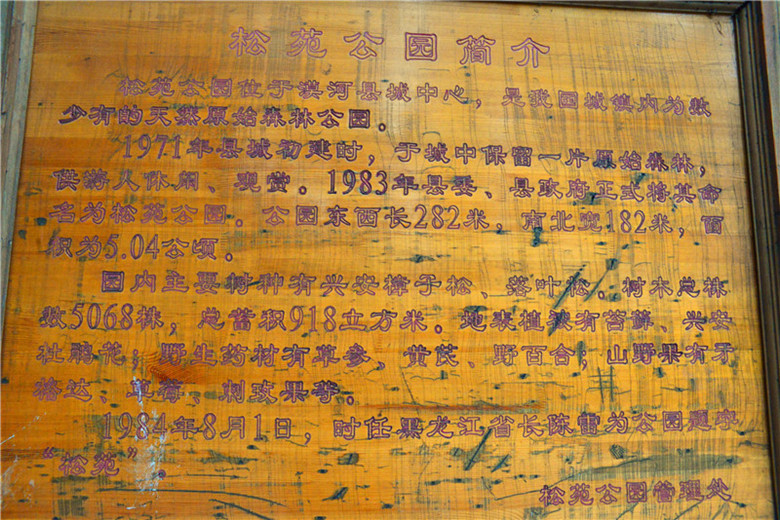 松苑公园简介
松苑公园位于漠河县城中心，是我国城镇内为数
少有的天然原始森林公园。
1971年县城初建时，于城中保留一片原始森林，
供游人休闲、观赏。1983年县委、县政府正式将其命
名为松苑公园。公园东西长282米，南北宽182米，面
积为5.04公顷。
园内主要树种有兴安樟子松、落叶松。树木总株
数5068株，总蓄积918立方米。地表植被有苔藓、兴安
杜鹃花；野生药材有草参，黄芪、野百合；山野果有牙
格达、草莓、刺玫果等。
1984年8月1日，时任黑龙江省长陈雷为公园题字
“松苑”。
松苑公园管理处